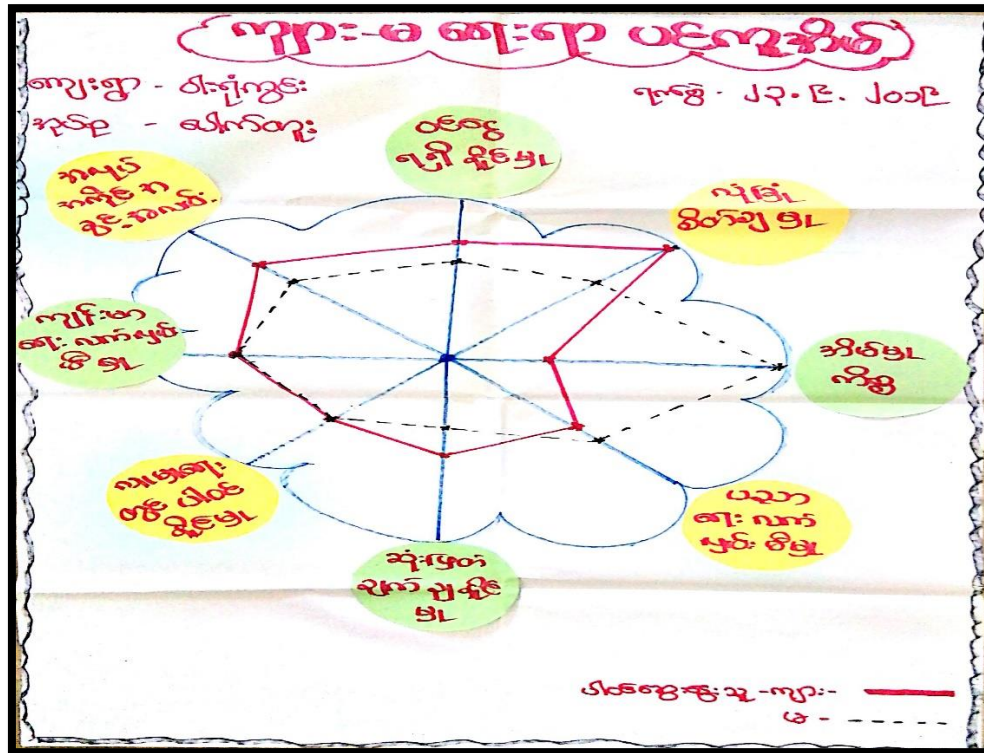 ကျား-မ ရေးရာ ပင့်ကူအိမ်
ကျေးရွာ - ဝါးရုံကွင်း
ရက်စွဲ - ၂၃.၉.၂၀၁၉
အုပ်စု - ပေါက်တူး
ဝင်ငွေ
ရရှိနိုင်မှု
လုံခြုံ
စိတ်ချမှု
အိမ်မှု
ကိစ္စ
ပညာ
ရေး လက်
လှမ်းမီမှု
ဆုံးဖြတ်
ချက်ချနိုင်
မှု
လူမှုရေး
တွင် ပါဝင်
နိုင်မှု
ကျန်းမာ
ရေး လက်လှမ်း
မီမှု
အလုပ်
အကိုင်အ
ခွင့်အလမ်း
ပါဝင်ဆွေးနွေးသူ - ကျား -
မ -